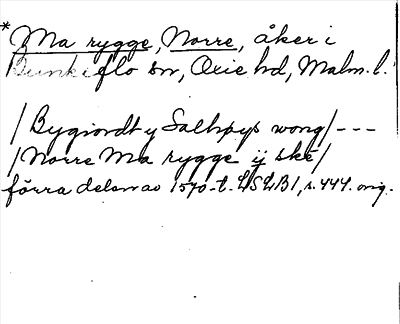 *Ma rygge, Norre, åker i
Bunkeflo sn, Oxie hd, Malm. l.
/Bygiordt y Salhpys wong/---
/Norre Ma rygge ij ske/
förra delen av 1570-t. LSLB1, s. 444. orig.